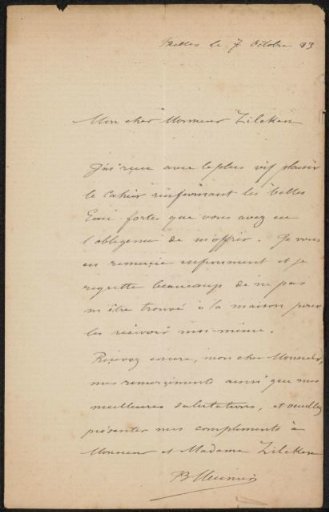 Ixelles le 7 Octobre 93
Mon cher Monsieur Zilcken
J'ai reçu avec le plus vif plaisir
le cahier renfermant les belles
Eaux fortes que vous avez eu
l'obligeance de m'offrir. Je vous
en remercie infiniment et je
regrette beaucoup de ne pas
m'être trouvé à la maison pour
les recevoir moi-même.
Recevez encore, mon cher Monsieur,
mes remerciements ainsi que mes
meilleures salutations, et veuillez
présenter mes compliments à
Monsieur et Madame Zilcken